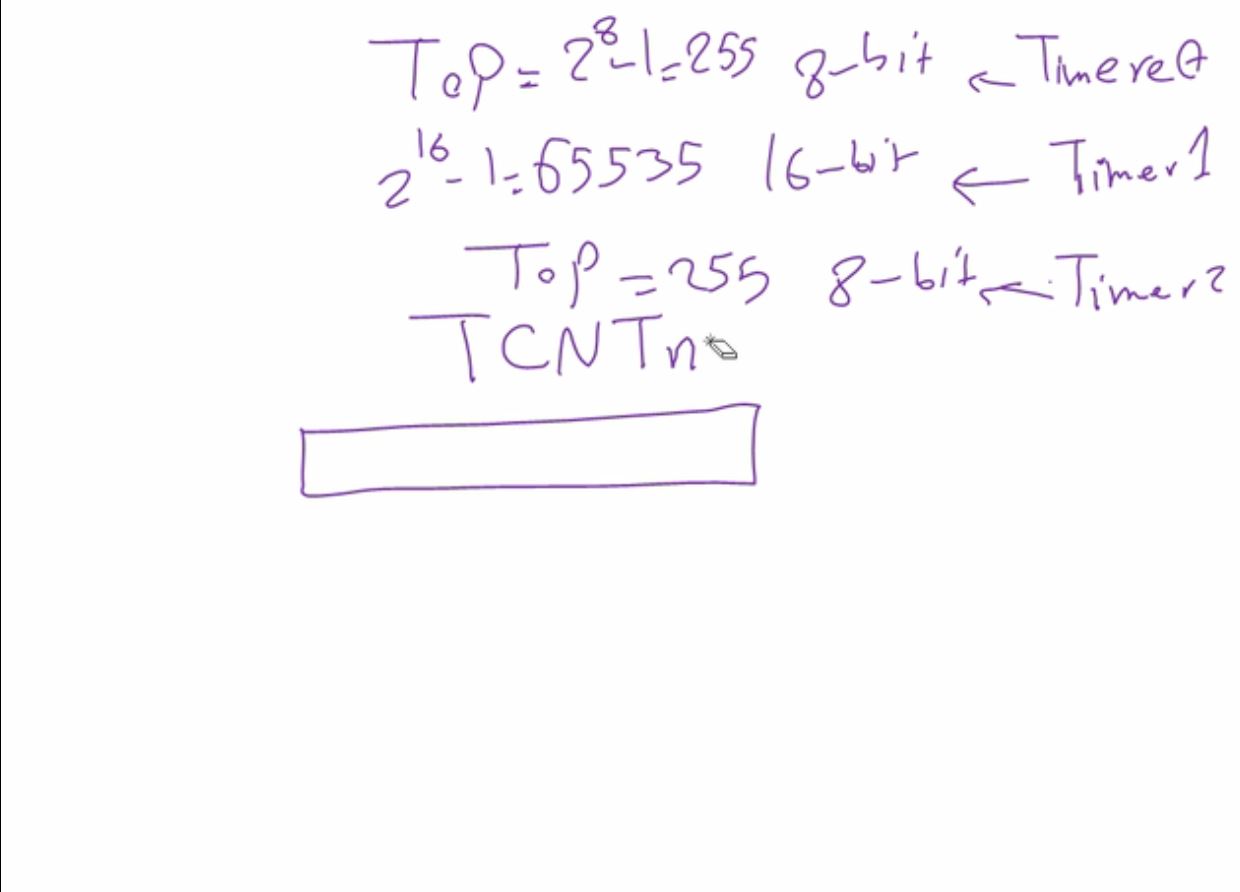 Top = 2^8 - 1 = 255 8-bit ← Timere0
2^16 - 1 = 65535 16-bit ← Timer1
Top = 255 8-bit ← Timer2
TCNTn